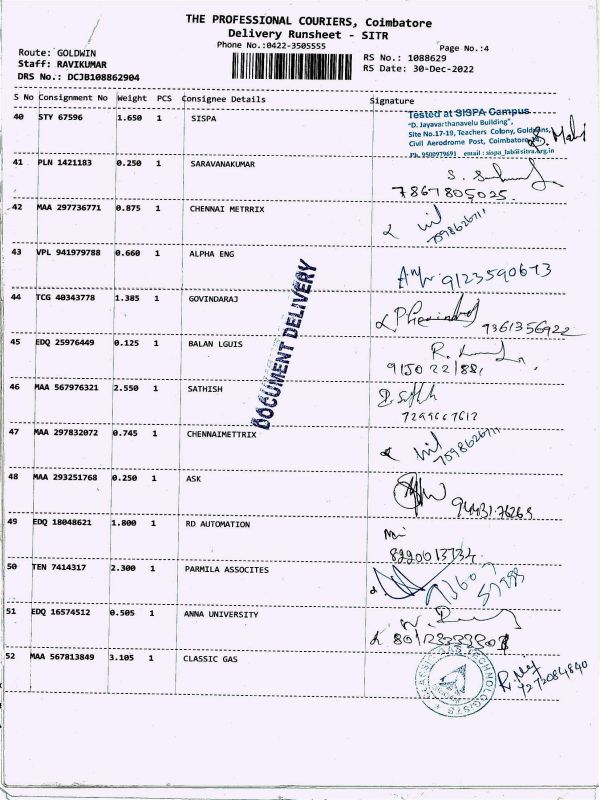 THE PROFESSIONAL COURIERS, Coimbatore
Delivery Runsheet - SITR
Phone No.:0422-3505555
Page No.:4
Route: GOLDWIN
RS No.: 1088629
Staff: RAVIKUMAR
RS Date: 30-Dec-2022
DRS No.: DCJB108862904
S No Consignment No Weight PCS Consignee Details Signature
40 STY 67596 1.650 1 SISPA
Tested at SISPA Campus
"D. Jayavarthanavelu Building",
Site No.17-19, Teachers Colony, Goldwins,
Civil Aerodrome Post, Coimbatore
41 PLN 1421183 0.250 1 SARAVANAKUMAR
7867805025.
42 MAA 297736771 0.875 1 CHENNAI METRRIX
7598626711
43 VPL 941979788 0.660 1 ALPHA ENG
9123590673
44 TCG 40343778 1.385 1 GOVINDARAJ
9361356922
45 EDQ 25976449 0.125 1 BALAN LGUIS
46 MAA 567976321 2.550 1 SATHISH
7299667612
47 MAA 297832072 0.745 1 CHENNAIMETTRIX
7598626711
48 MAA 293251768 0.250 1 ASK
49 EDQ 18048621 1.800 1 RD AUTOMATION
8220013334
50 TEN 7414317 2.300 1 PARMILA ASSOCITES
51 EDQ 16574512 0.505 1 ANNA UNIVERSITY
52 MAA 567813849 3.105 1 CLASSIC GAS
CLASSIC GAS TECHNOLOGISTS
DOCUMENT DELIVERY